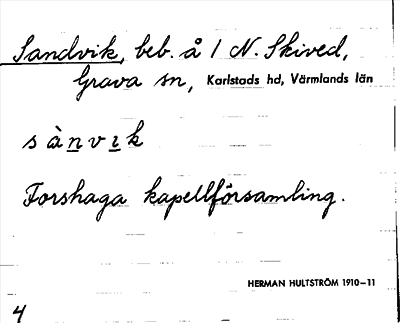 Sandvik, beb. å 1 N. Skived,
Grava sn, Karlstads hd, Värmlands län
s à n v i k
Forshaga kapellförsamling.
HERMAN HULTSTRÖM 1910–11
4